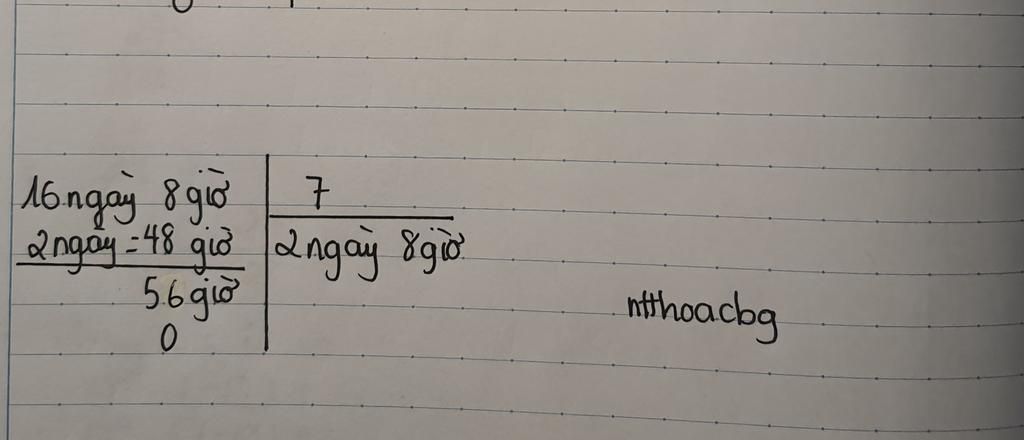 16 ngày 8 giờ | 7
2 ngày = 48 giờ | 2 ngày 8 giờ
56 giờ
0
ntthoacbg